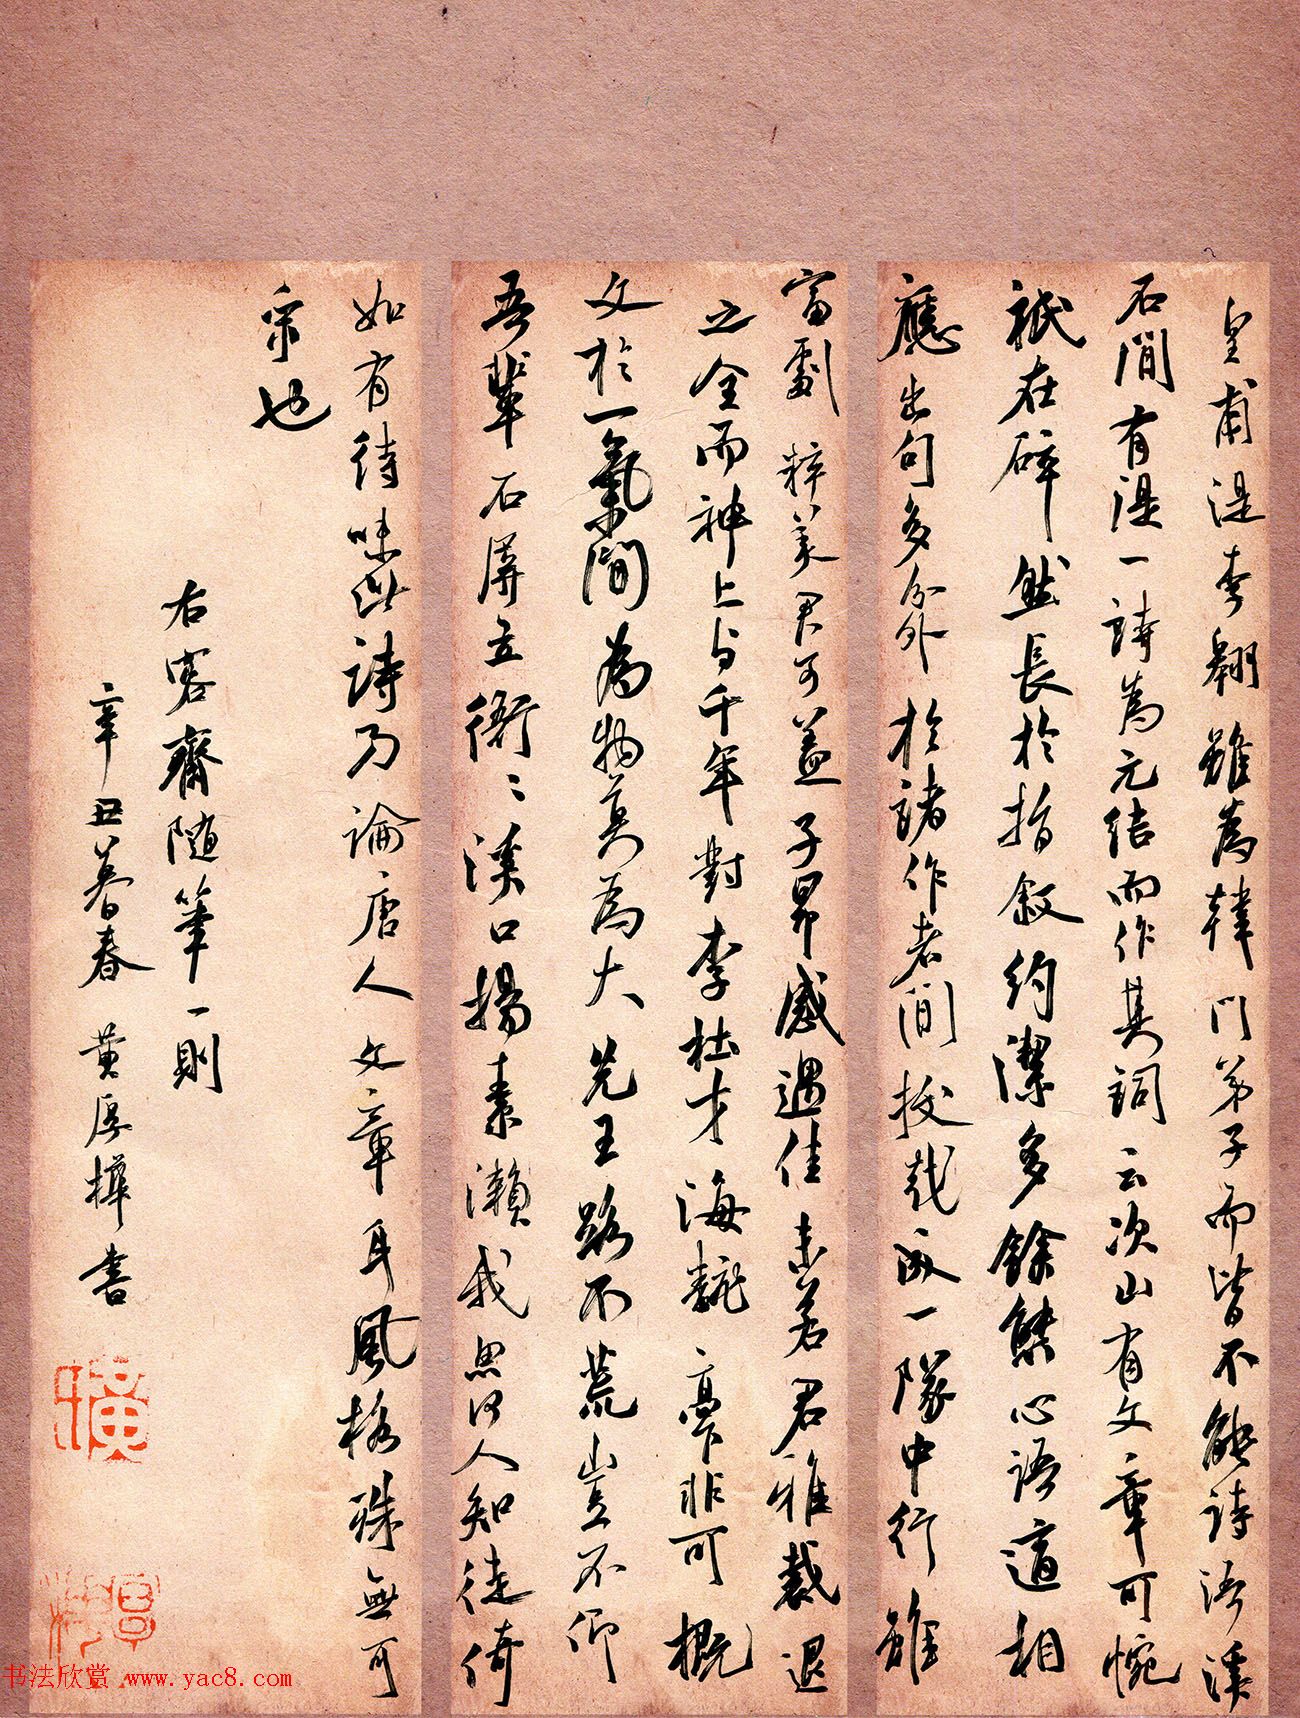 皇甫湜李翱雖為韓門弟子而皆不能詩浯溪
石間有湜一詩為元結而作其詞云次山有文章可惋
祇在碎然長於指敘約潔多餘態心語適相
應出句多分外於諸作者間拔戟成一隊中行雖
富劇粹美君可蓋子昂感遇佳未若君雅裁退
之全而神上與千年對李杜才海翻高下非可概
文於一氣間為物莫為大先王路不荒豈不仰
吾輩石屏立衙衙溪口揚素瀨我思何人知徙倚
如有待味此詩乃論唐人文章耳風格殊無可
采也
右容齋隨筆一則
辛丑暮春 黃厚樺書
书法欣赏 www.yac8.com